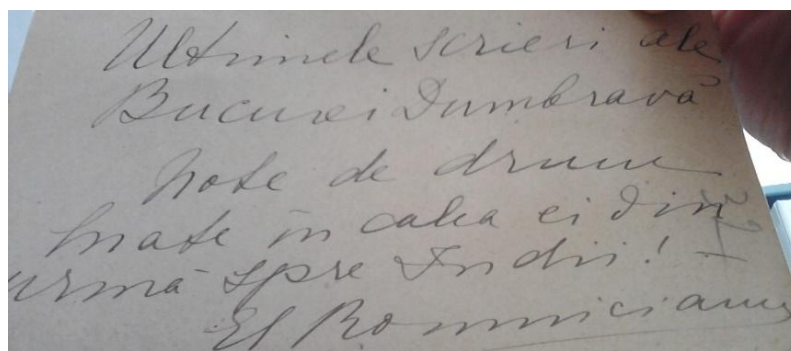 Ultimele scrieri ale
Bucurei Dumbravă
Note de drum
luate în calea ei din
urmă spre Indii!
El Romniceanu